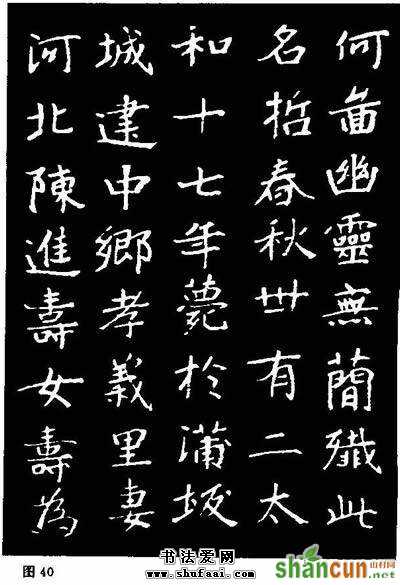 何啚幽靈無簡殲此
名哲春秋卌有二太
和十七年薨於蒲坂
城建中鄉孝義里妻
河北陳進壽女壽為
图 40
书法爱网
www.shufaai.com
shancun
山村网
.net